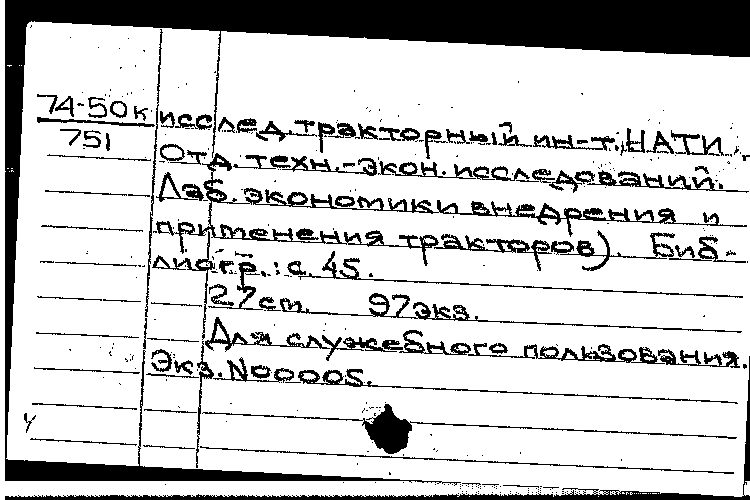 74-50к исслед. тракторный ин-т, НАТИ.
751
Отд. техн.-экон. исследований.
Лаб. экономики внедрения и
применения тракторов). Биб-
лиогр.: с. 45.
27 cm. 97 экз.
Для служебного пользования.
Экз. N00005.